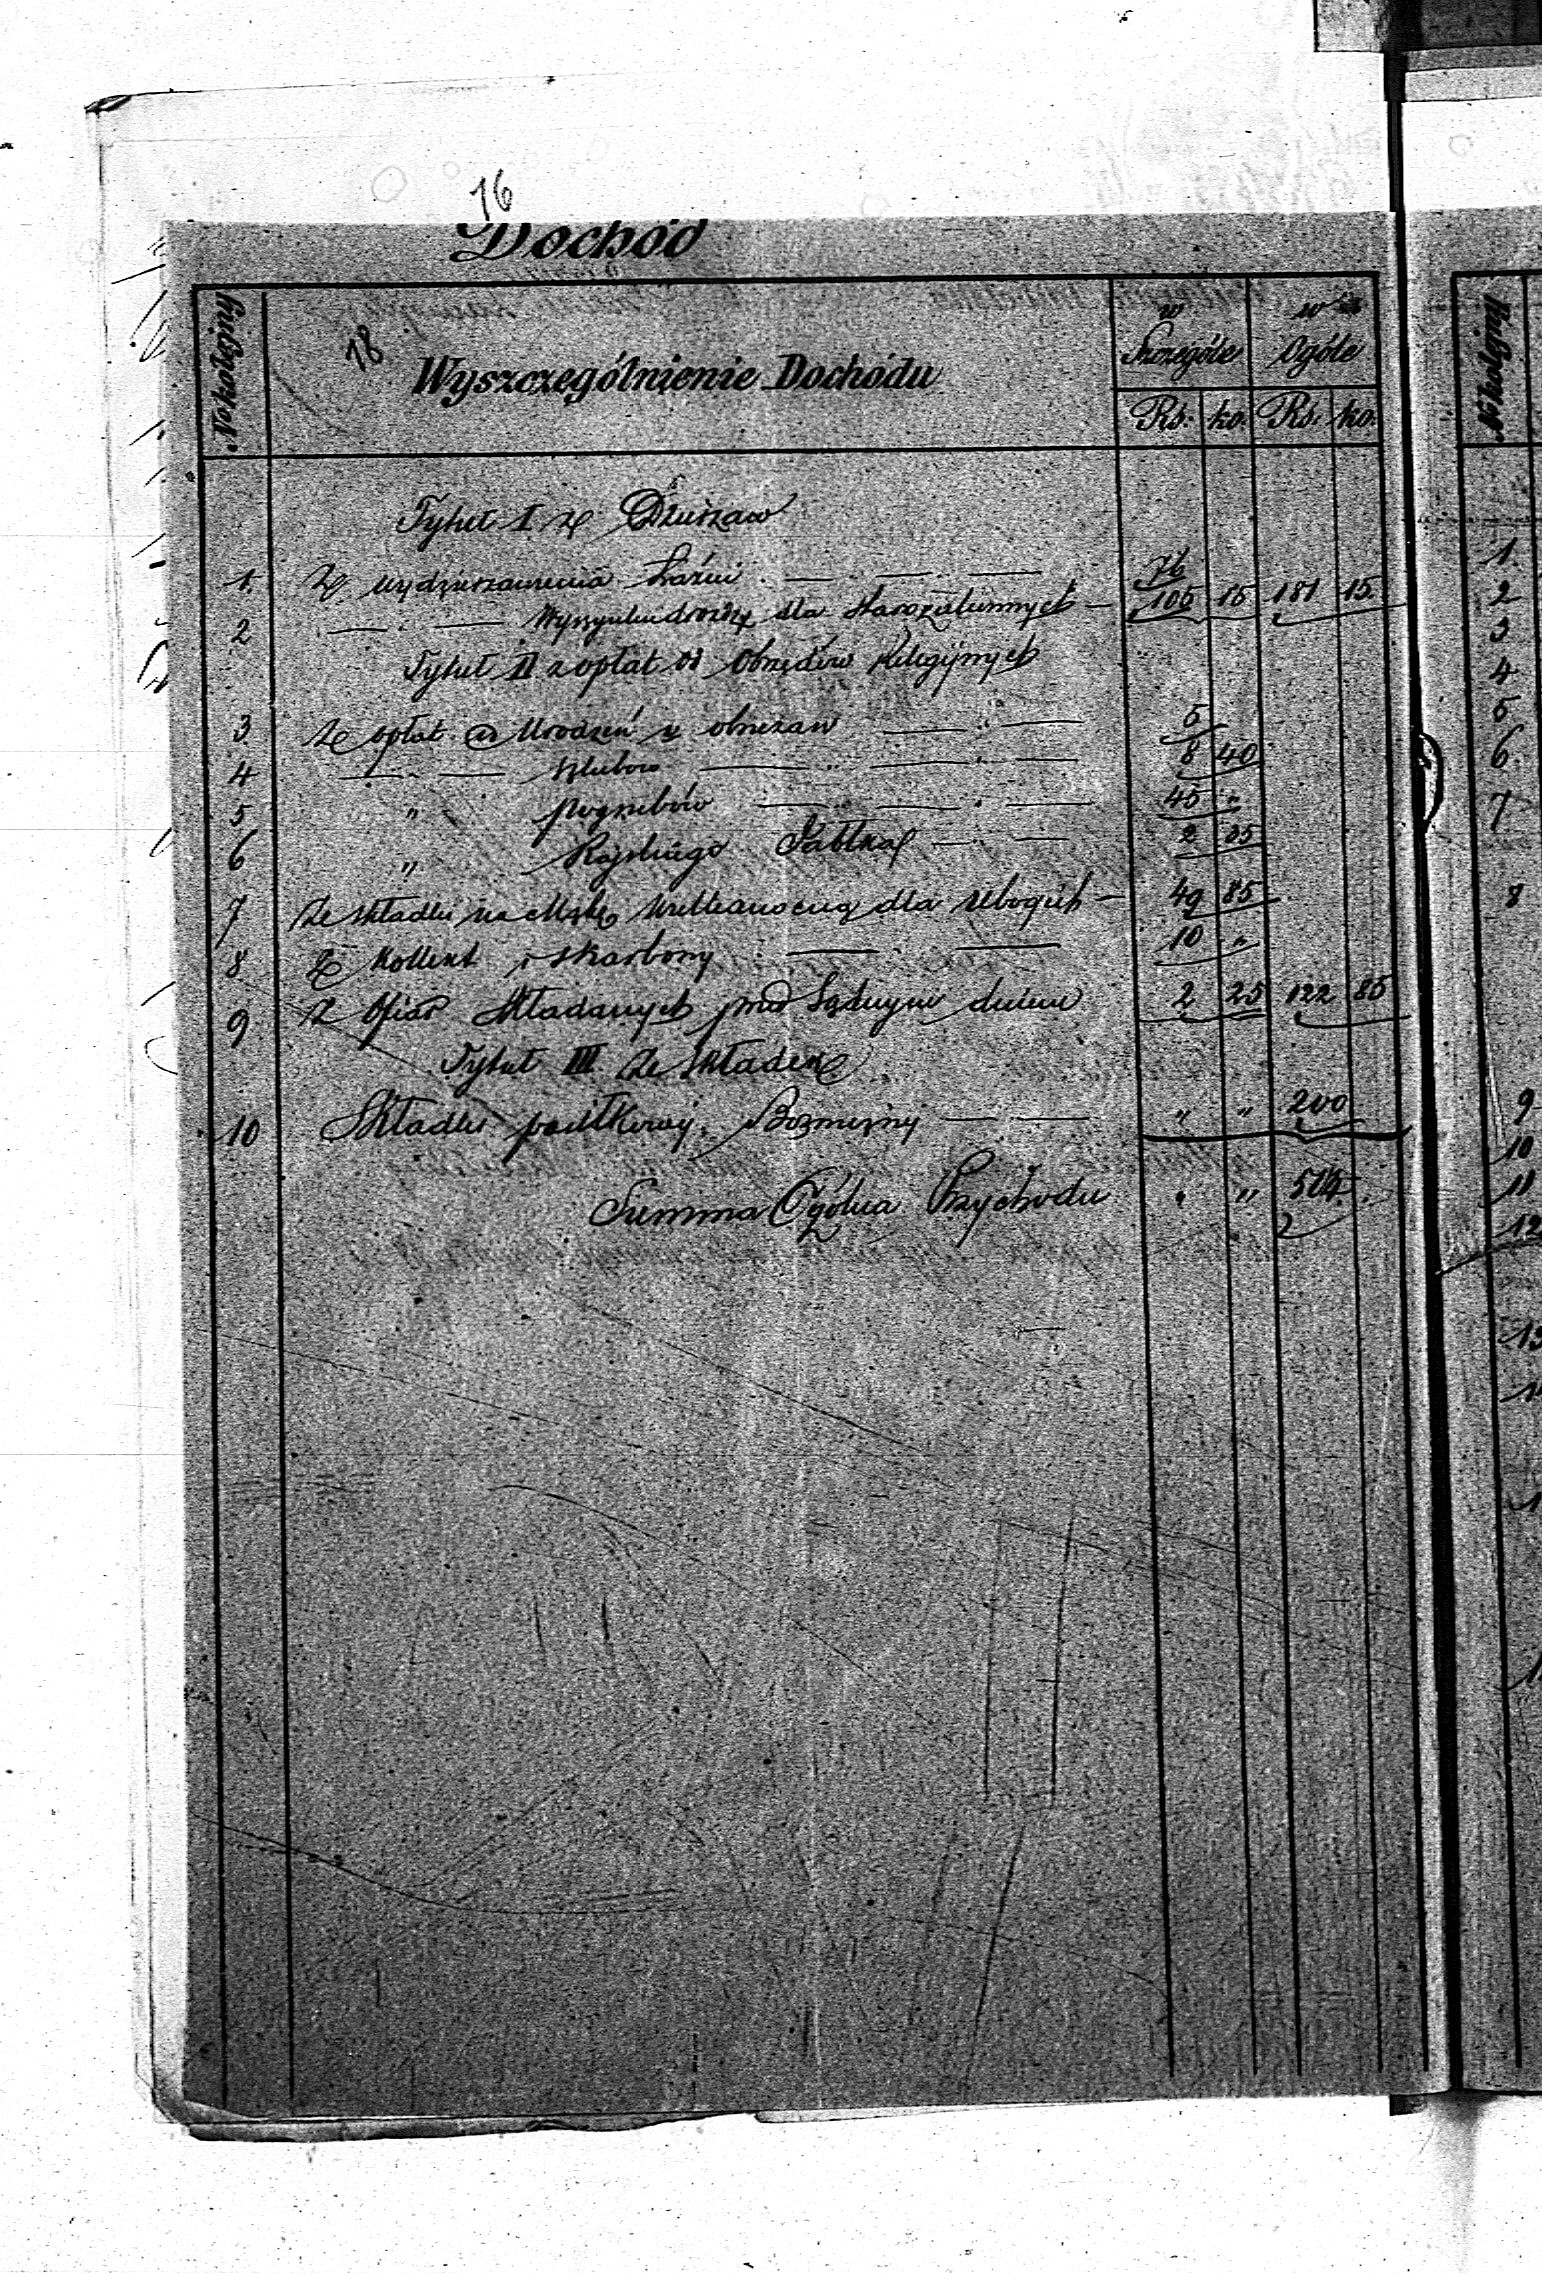 16
Dochód
No kolejny
18
Wyszczególnienie Dochodu
w Szczególe
w Ogóle
Rs. ko. Rs. ko.
Tytuł I z Dzierżaw
1. Z wydzierżawienia Łaźni 76
2 dla starozakonnych 105 15 181 15
Tytuł II z opłat od Obrzędów Religijnych
3 Ze opłat od Urodzeń i obrzezań 5
4 szlubów 8 40
5 " pogrzebów 45 "
6 " Rajskiego Jabłka 2 35
7 Ze składki na Mąkę Wielkanocną dla Ubogich 49 85
8 Z Kollekt i skarbony 10 "
9 Z Ofiar składanych przed Sądnym dniem 2 25 122 85
Tytuł III Ze składek
10 Składki Bożniczny " " 200
Summa Ogólna Przychodu " " 504
No kolejny
1.
2
3
4
5
6.
7
8
9
10
11
12
13